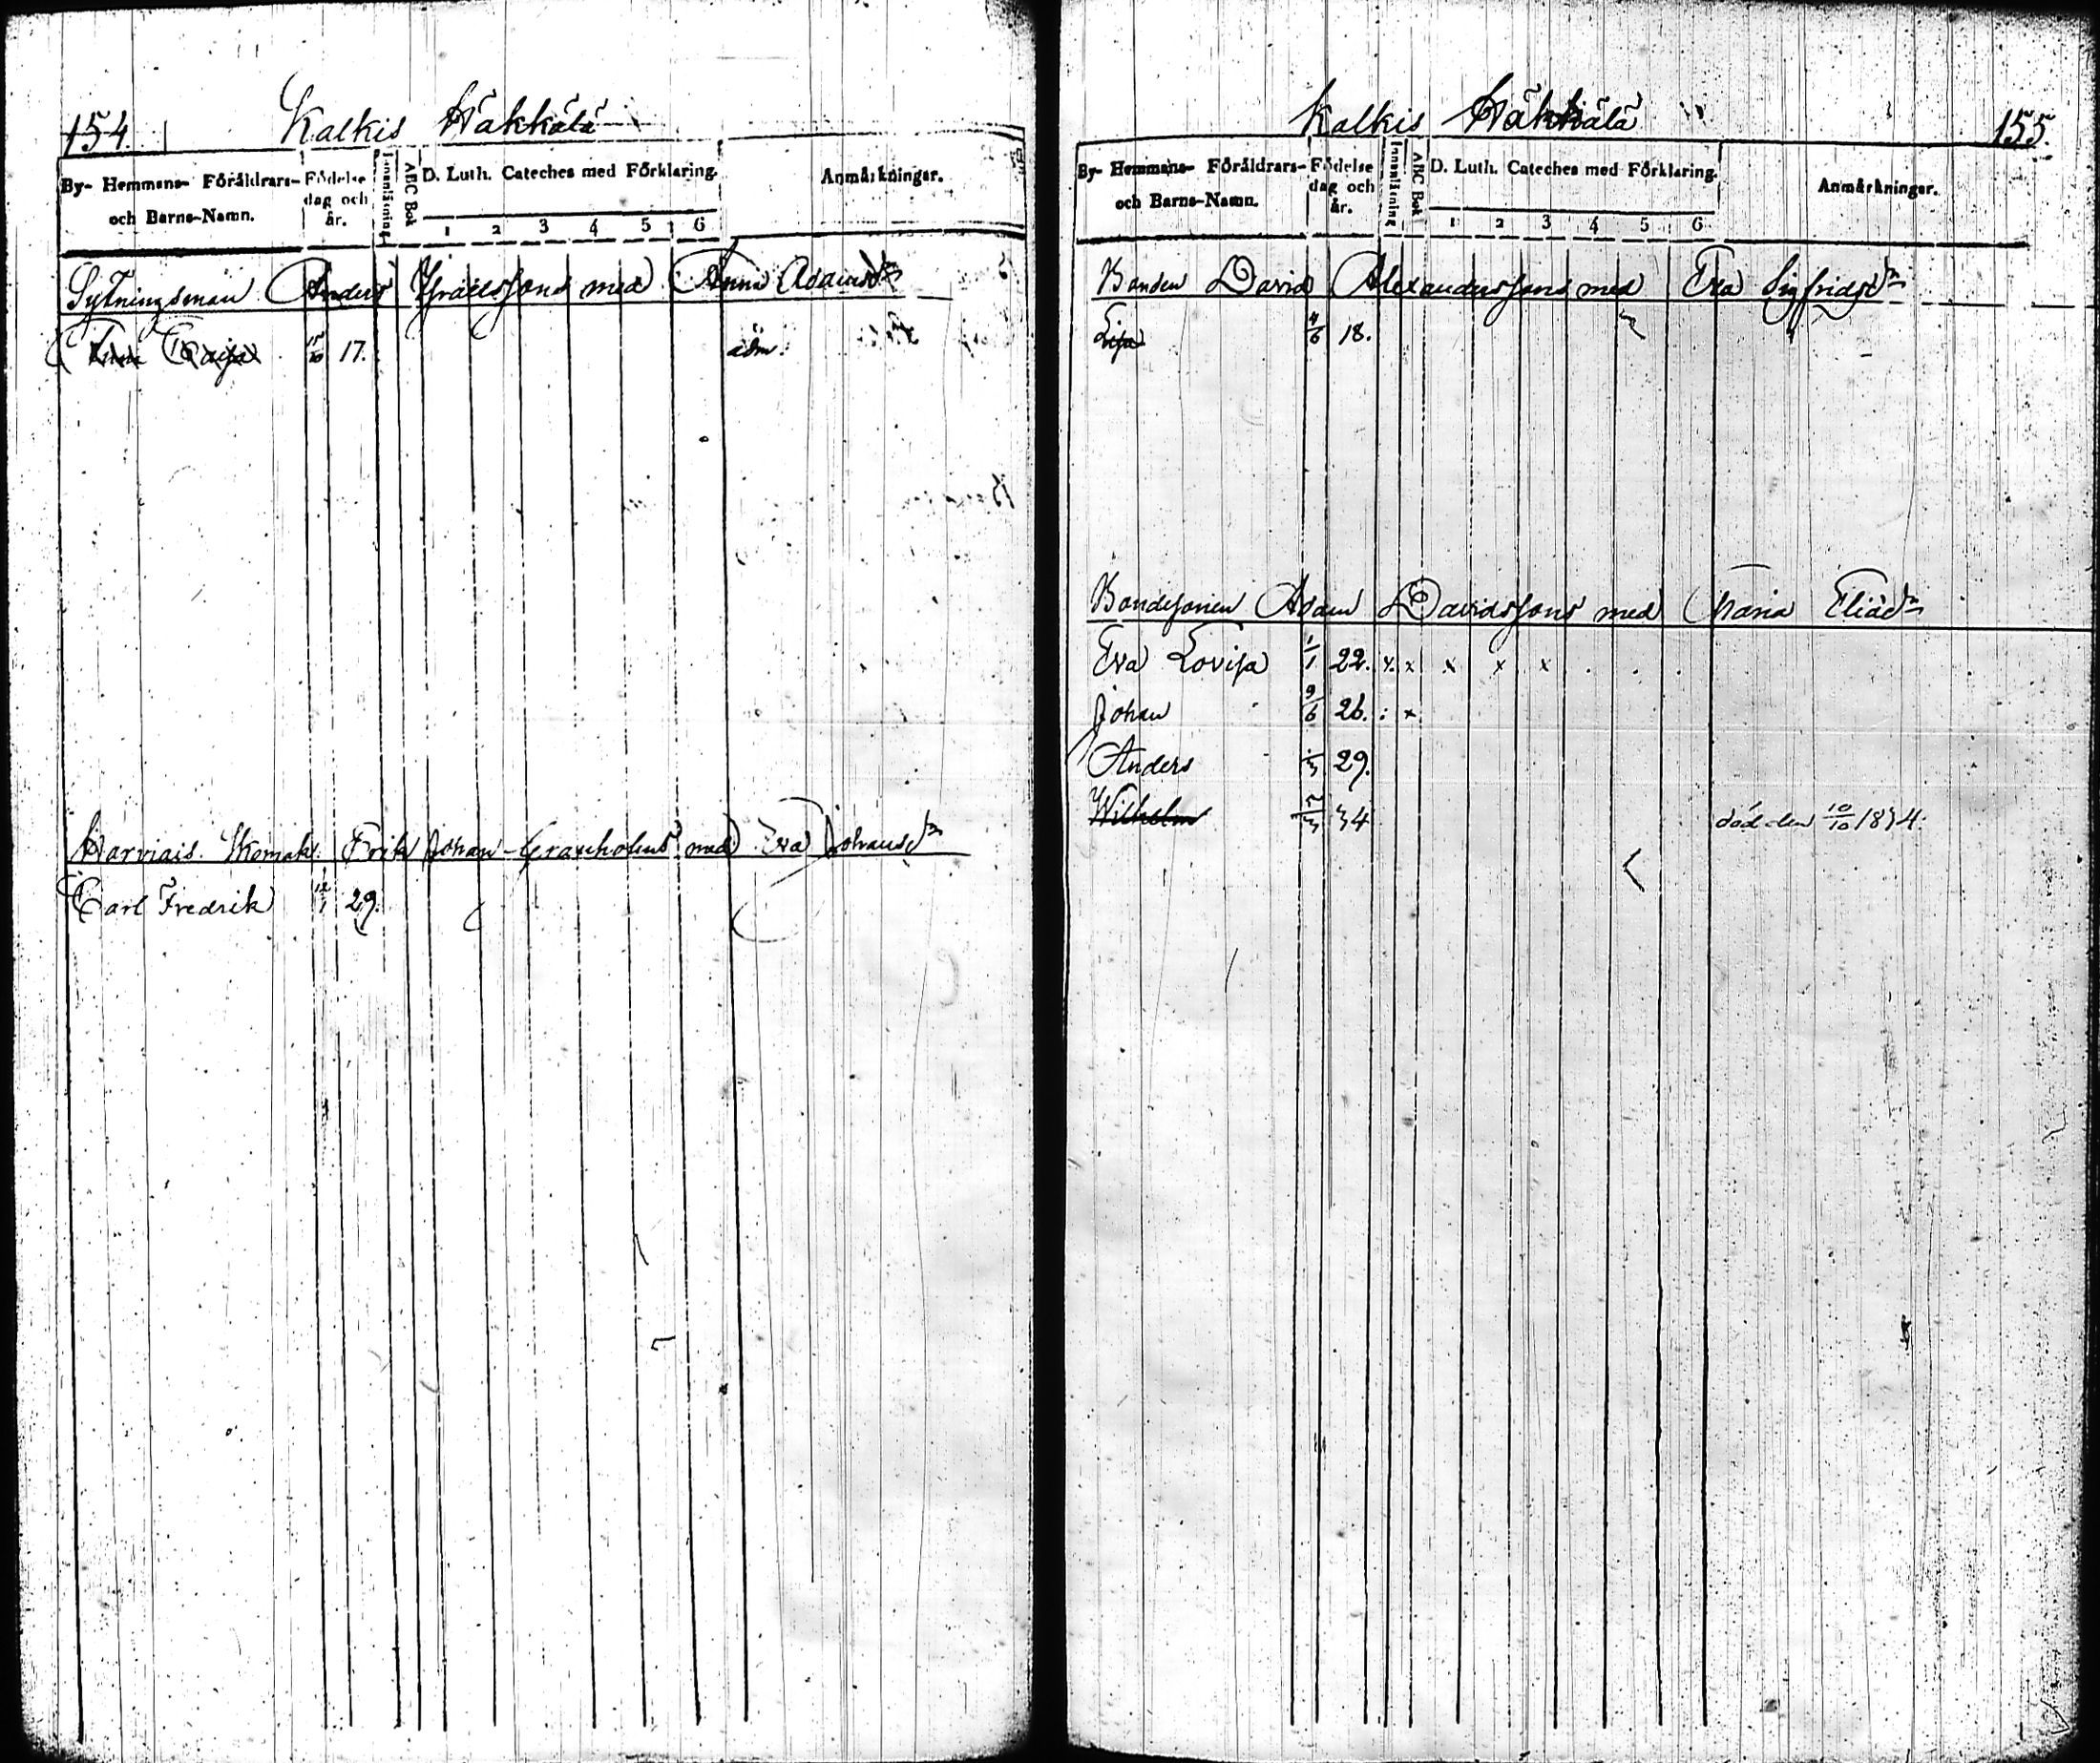 154. Kalkis Häkkälä
By- Hemmans- Föräldrars- och Barns-Namn. Födelse dag och år. Innanläsning ABC Bok D. Luth. Cateches med Förklaring. Anmärkningar.
1 2 3 4 5 6
Sytningsman Anders Israelssons med Anna Adamsdr
Caisa 17. ádm.
Erik Johan Granholms med Eva Johansdr
Carl Fredrik 29.
Kalkis Häkkälä 155.
By- Hemmans- Föräldrars- och Barns-Namn. Födelse dag och år. Innanläsning ABC Bok D. Luth. Cateches med Förklaring. Anmärkningar.
1 2 3 4 5 6
Bonden David Alexanderssons med Eva Sigfridsdr
Lisa 4/6 18.
Bondesonen Adam Davidssons med Maria Eliædr
Eva Lovisa 1/1 22. x. x x x x . . .
Johan 9/6 26. : x
Anders 29.
Wilhelm 34 död den 10/10 1834.